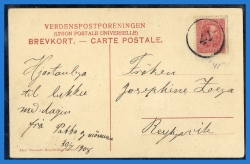 VERDENSPOSTFORENINGEN
(UNION POSTALE UNIVERSELLE)
BREVKORT. — CARTE POSTALE.
Hjartanlega
til lukku
með daginn
frá Pabba og mömmu
Fröken
Josephine Zoega
Reykjavik